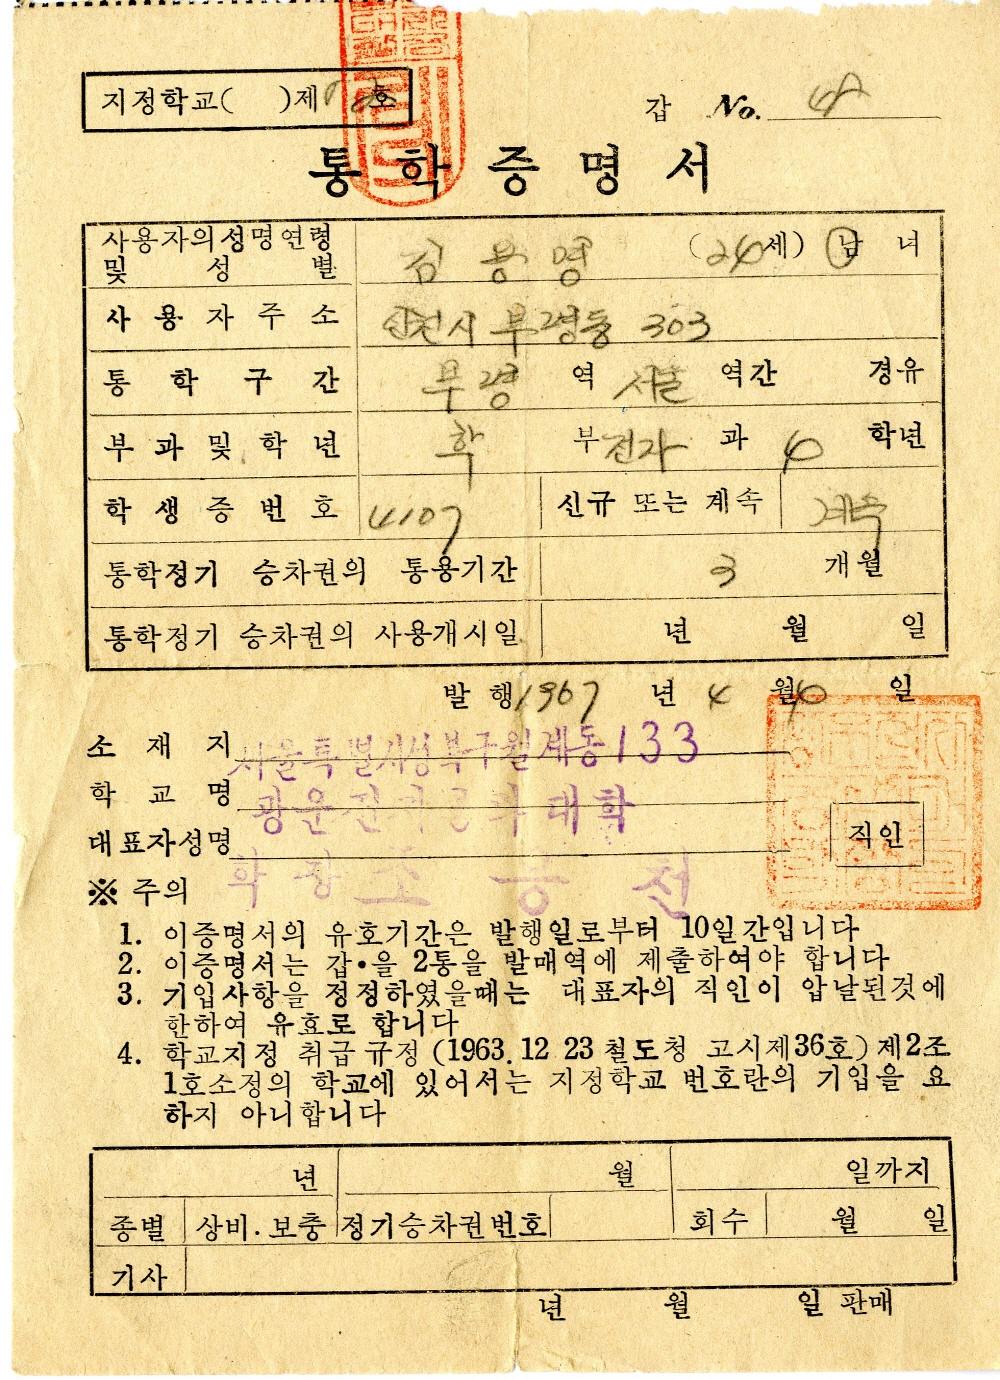 지정학교( )제 호
갑 No.
통학증명서
사용자의성명연령 및 성별 김용명 (24세) 남 녀
사용자주소 인천시 부평동 303
통학구간 부평 역 서울 역간 경유
부과및학년 학 부 전자 과 4 학년
학생증번호 4107 신규 또는 계속 계속
통학정기 승차권의 통용기간 3 개월
통학정기 승차권의 사용개시일 년 월 일
발행 1967 년 4 월 일
소재지 서울특별시성북구월계동133
학교명 광운전자공과대학
대표자성명 학장 조응천
직인
※ 주의
1. 이증명서의 유호기간은 발행일로부터 10일간입니다
2. 이증명서는 갑•을 2통을 발매역에 제출하여야 합니다
3. 기입사항을 정정하였을때는 대표자의 직인이 압날된것에
한하여 유효로 합니다
4. 학교지정 취급규정 (1963.12 23 철도청 고시제36호) 제2조
1호소정의 학교에 있어서는 지정학교 번호란의 기입을 요
하지 아니합니다
년 월 일까지
종별 상비.보충 정기승차권번호 회수 월 일
기사
년 월 일 판매